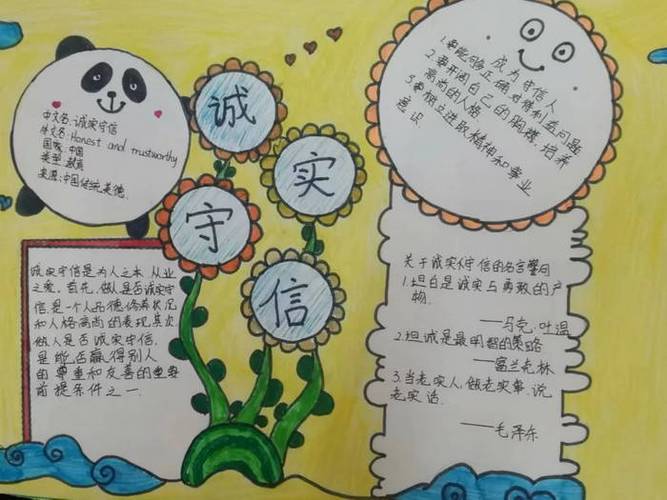 诚
实
守
信
中文名:诚实守信
外文名:Honest and trustworthy
国家:中国
类型:教育
来源:中国传统美德.
诚实守信是为人之本.从业
之要。首先,做人是否诚实守
信.是一个人品德修养状况
和人格高尚的表现.其次.
做人是否诚实守信.
是能否赢得别人
的尊重和友善的重要
前提条件之一.
成为守信人
1.要能够正确对待利益问题
2.要开阔自己的胸襟,培养
高尚的人格.
3.要树立进取精神和事业
意识
关于诚实守信的名言警句
1.坦白是诚实与勇敢的产
物.
——马克.吐温
2.坦诚是最明智的策略
——富兰克林
3.当老实人,做老实事.说
老实话.
——毛泽东